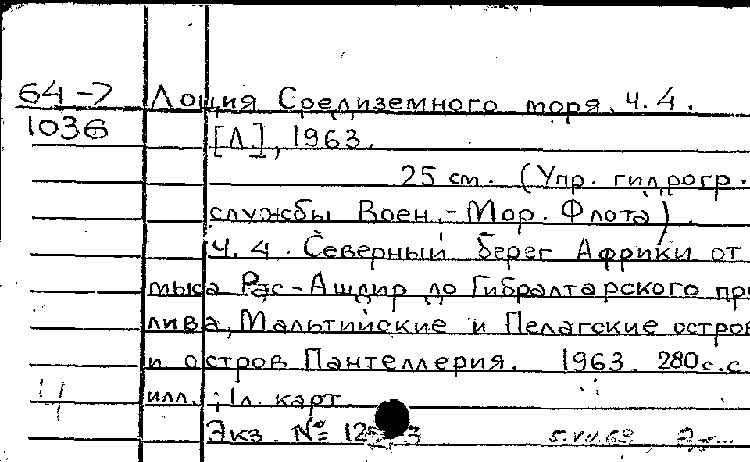 64-7
1036
Лоция Средиземного моря. Ч. 4.
[Л], 1963.
25 см. (Упр. гидрогр.
службы Воен.-Мор. Флота).
Ч. 4. Северный берег Африки от
мыса Рас-Ашдир до Гибралтарского про
лива, Мальтийские и Пелагские остров
и остров Пантеллерия. 1963. 280 с. с
илл.; 1л. карт.
Экз. №